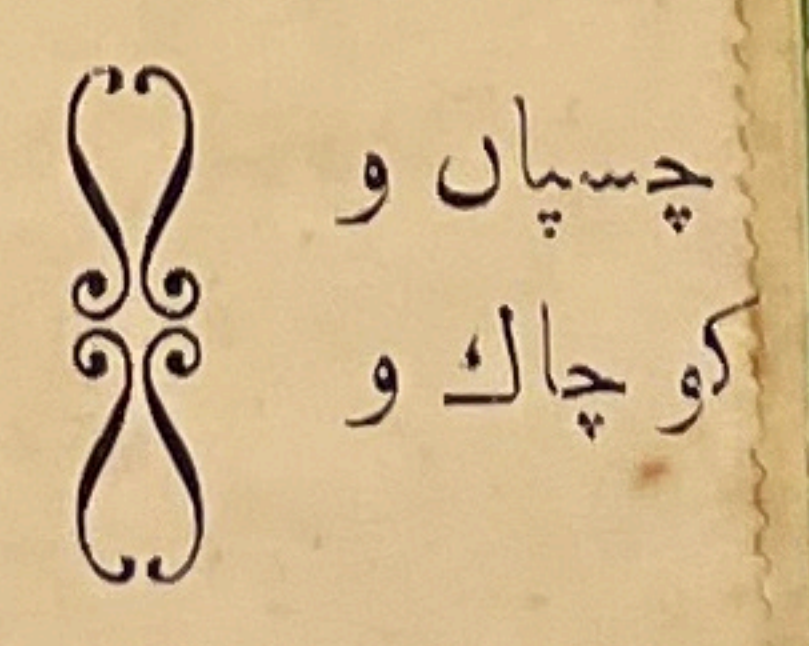 چسپاں و
کو چاك و